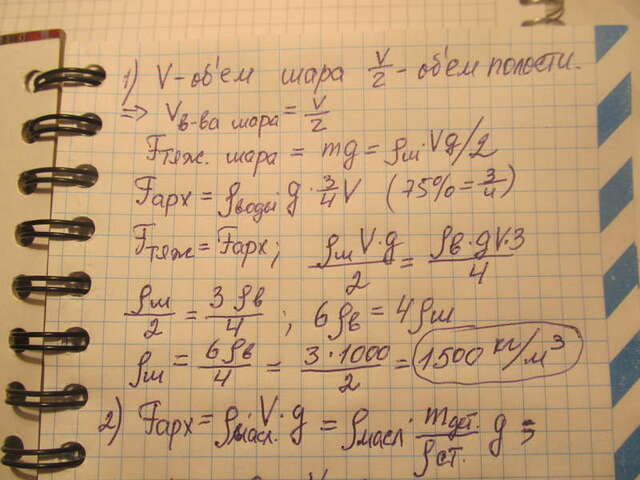 1) V - об'ем шара V/2 - об'ем полости.
=> Vв-ва шара = V/2
Fтяж. шара = mg = ρш·Vg/2
Fарх = ρводы·g·3/4 V (75% = 3/4)
Fтяж = Fарх; ρшV·g/2 = ρв·gV·3/4
ρш/2 = 3ρв/4; 6ρв = 4ρш
ρш = 6ρв/4 = 3·1000/2 = 1500 кг/м³
2) Fарх = ρмасл.V·g = ρмасл·mдет./ρст. g =